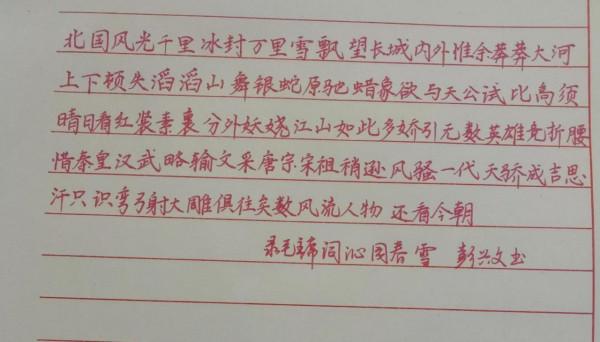 北国风光千里冰封万里雪飘望长城内外惟余莽莽大河
上下顿失滔滔山舞银蛇原驰蜡象欲与天公试比高须
晴日看红装素裹分外妖娆江山如此多娇引无数英雄竞折腰
惜秦皇汉武略输文采唐宗宋祖稍逊风骚一代天骄成吉思
汗只识弯弓射大雕俱往矣数风流人物还看今朝
录毛主席词沁园春雪 彭兴文书